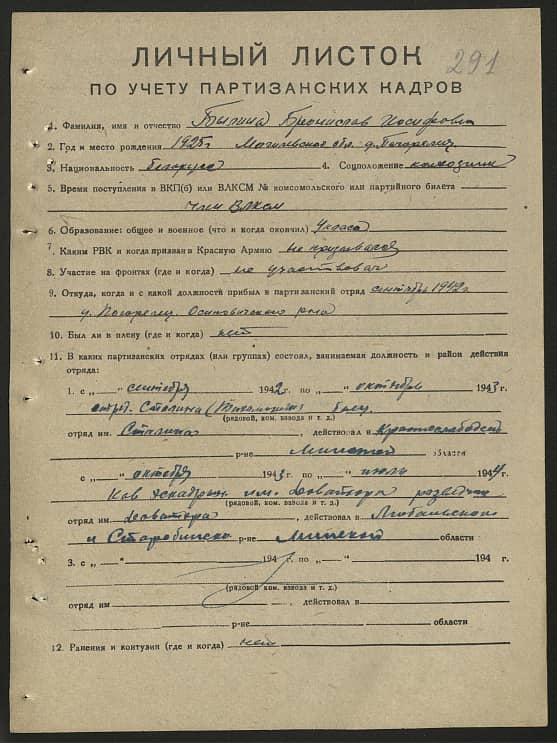 ЛИЧНЫЙ ЛИСТОК
291
ПО УЧЕТУ ПАРТИЗАНСКИХ КАДРОВ
1. Фамилия, имя и отчество Бронислав Иосифович
2. Год и место рождения 1925г Могилевская обл. д.
3. Национальность белорус 4. Соцположение колхозник
5. Время поступления в ВКП(б) или ВЛКСМ № комсомольского или партийного билета
член ВЛКСМ
6. Образование: общее и военное (что и когда окончил) 4 класса
7. Каким РВК и когда призван в Красную Армию не призывался
8. Участие на фронтах (где и когда) не участвовал
9. Откуда, когда и с какой должности прибыл в партизанский отряд сентябрь 1942г
д. Погорелец Осиповичского р-на
10. Был ли в плену (где и когда) нет
11. В каких партизанских отрядах (или группах) состоял, занимаемая должность и район действия
отряда:
1. с „—“ сентября 1942 по „—“ октябрь 1943 г.
отряд. Сталина боец
(рядовой, ком. взвода и т. д.)
отряд им. Сталина, действовал в Краснослободск
р-не Минской области
с „—“ октября 1943 г. по „—“ июль 1944 г.
Кав эскадрон им. Доватора разведчик
(рядовой, ком. взвода и т. д.)
отряд им Доватора, действовал в Любаньском
и Старобинско р-не Минской области
3. с „—“ 194 г. по „—“ 194 г.
(рядовой ком. взвода и т. д.)
отряд им действовал в
р-не области
12. Ранения и контузии (где и когда) нет